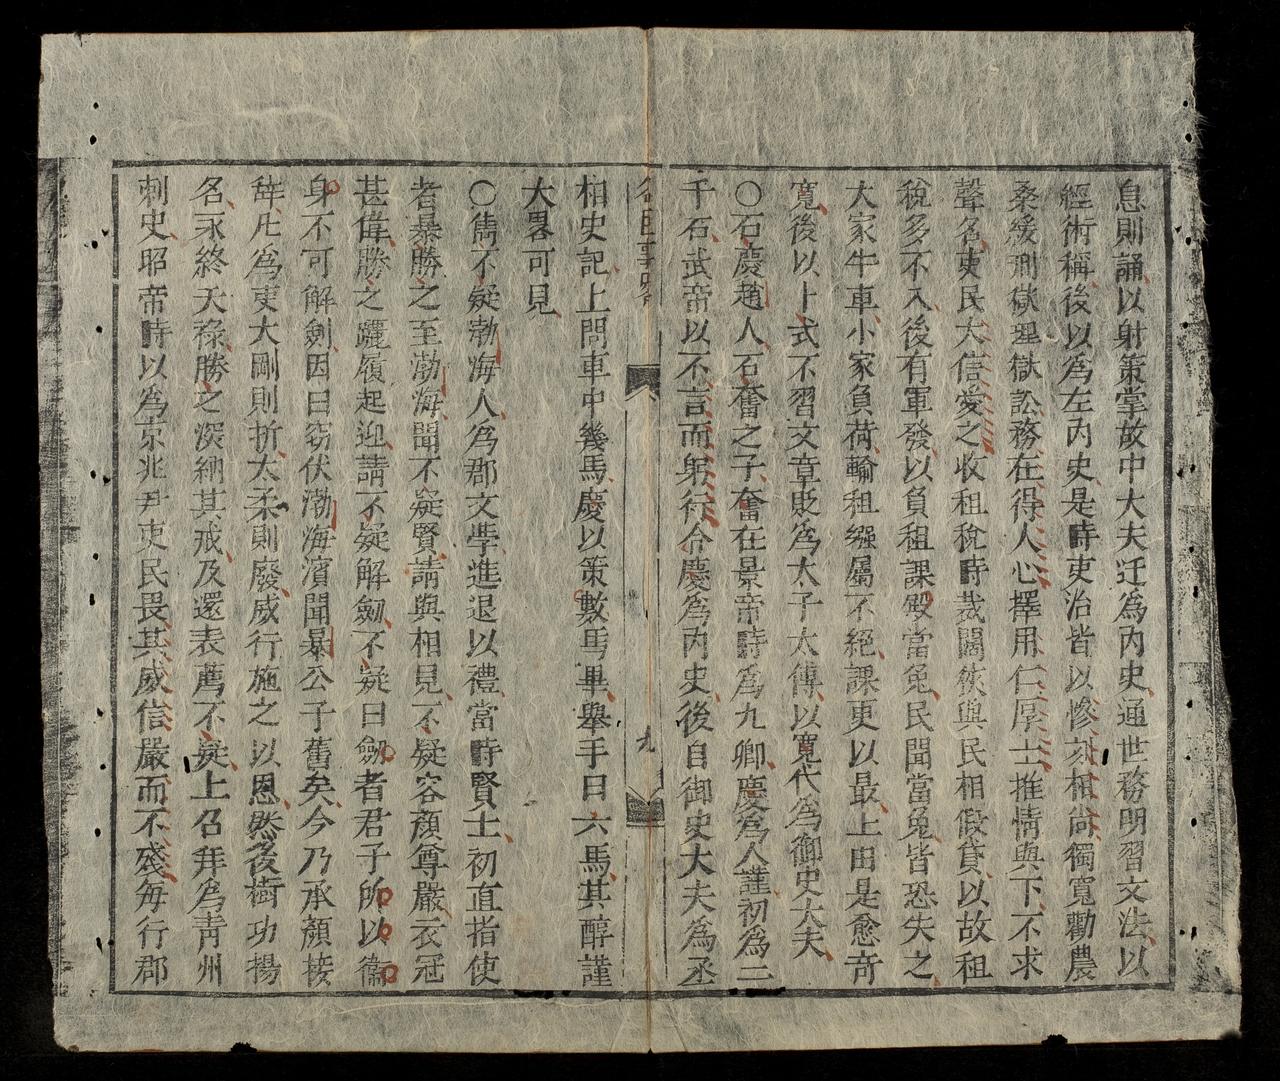 息則誦以射策掌故中大夫迁爲内史通世務明習文法以
經術稱後以爲左内史是時吏治皆以慘刻相尚獨寬勸農
桑緩刑獄理獄訟務在得人心擇用仁厚士推情與下不求
聲名吏民大信愛之收租稅時裁闊狹與民相假貸以故租
稅多不入後有軍發以負租課殿當免民聞當免皆恐失之
大家牛車小家負荷輸租繦屬不絕課更以最上由是愈奇
寬後以卜式不習文章貶爲太子太傅以寬代爲御史大夫
〇石慶趙人石奮之子奮在景帝時爲九卿慶爲人謹初爲二
千石武帝以不言而躬行令慶爲内史後自御史大夫爲丞
名臣事畧
九
相史記上問車中幾馬慶以策數馬畢舉手曰六馬其醇謹
大畧可見
〇雋不疑渤海人爲郡文學進退以禮當時賢士初直指使
者暴勝之至渤海聞不疑賢請與相見不疑容顏尊嚴衣冠
甚偉勝之躧履起迎請不疑解劔不疑曰劔者君子所以衞
身不可解劍因曰窃伏渤海濱聞暴公子舊矣今乃承顏接
辞凡爲吏大剛則折太柔則廢威行施之以恩然後樹功揚
名永終天祿勝之深納其戒及還表薦不疑上召拜爲青州
刺史昭帝時以爲京兆尹吏民畏其威信嚴而不殘每行郡